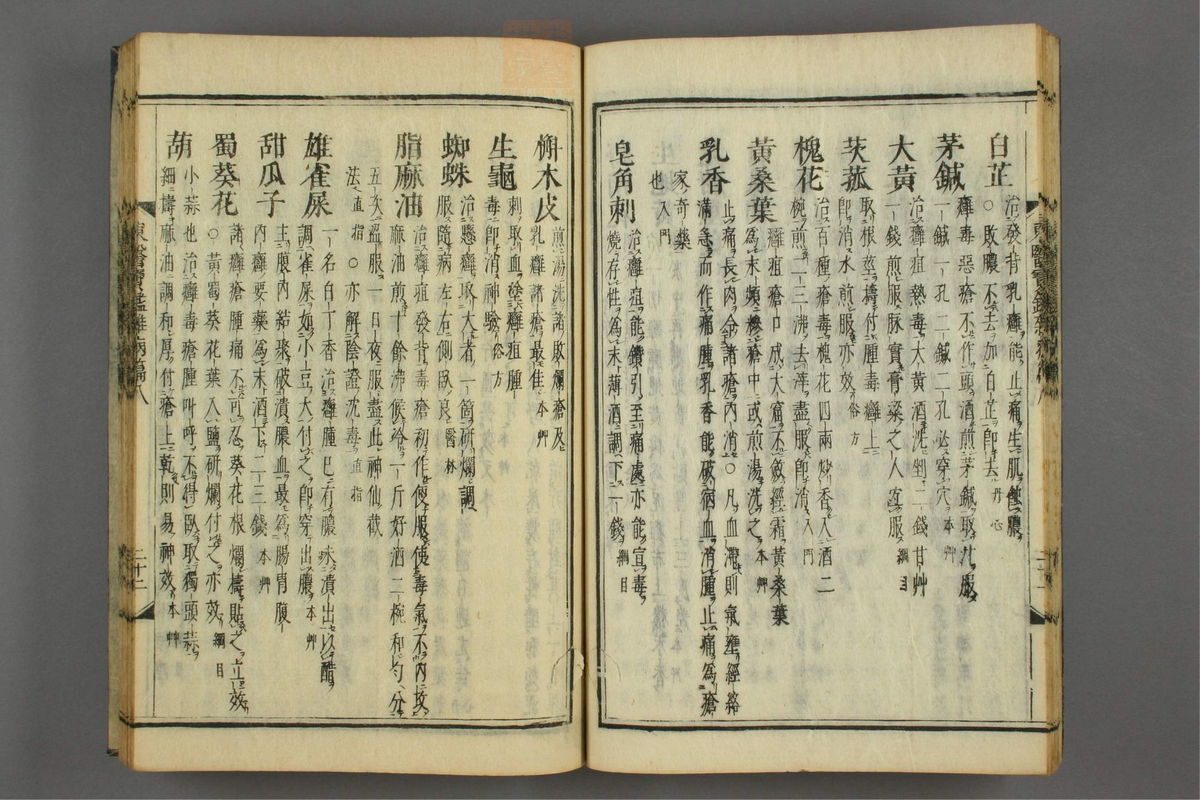 白芷 治發背乳癰能止痛生肌蝕膿
○敗膿不去加白芷卽去丹心
茅鍼 癰毒惡瘡不作頭酒煎茅鍼取汁服
一鍼一孔二鍼二孔必穿穴本艸
大黃 治癰疽熱毒大黃酒洗剉二錢甘艸
一錢煎服脉實膏粱之人宜服綱目
茨菰 取根莖擣付腫毒癰上
卽消水煎服亦效俗方
槐花 治百種瘡毒槐花四兩炒香入酒二
椀煎二三沸去滓盡服卽消入門
黃桑葉 癰疽瘡口成大窟不斂經霜黃桑葉
爲末頻摻瘡中或煎湯洗之本艸
乳香 止痛長肉令諸瘡內消○凡血滯則氣壅經絡
滿急而作痛腫乳香能破宿血消腫止痛爲瘡
家奇藥
也入門
皂角刺 治癰疽能鑽引至痛處亦能宣毒
燒存性爲末薄酒調下一錢綱目
東醫寶鑑雜病篇八
槲木皮 煎湯洗諸敗爛瘡及
乳癰諸瘡最佳本艸
生龜 刺取血塗癰疽腫
毒卽消神驗俗方
蜘蛛 治懸癰取大者一箇研爛調
服隨病左右側臥良醫林
脂麻油 治癰疽發背毒瘡初作便服使毒氣不內攻
麻油煎十餘沸候冷一斤好酒二椀和勻分
五次溫服一日夜服盡此神仙截
法直指○亦解陰證沈毒直指
雄雀屎 一名白丁香治癰腫已有膿未潰出以醋
調雀屎如小豆大付之卽穿出膿本艸
甜瓜子 主腹內結聚破潰膿血最爲腸胃腹
內癰要藥爲末酒下二三錢本艸
蜀葵花 諸癰瘡腫痛不可忍葵花根爛擣貼之立效
○黃蜀葵花葉入鹽研爛付之亦效綱目
葫 小蒜也治癰毒瘡腫叫呼不得臥取獨頭蒜
細擣麻油調和厚付瘡上乾則易神效本艸
東醫寶鑑雜病篇八 二十二